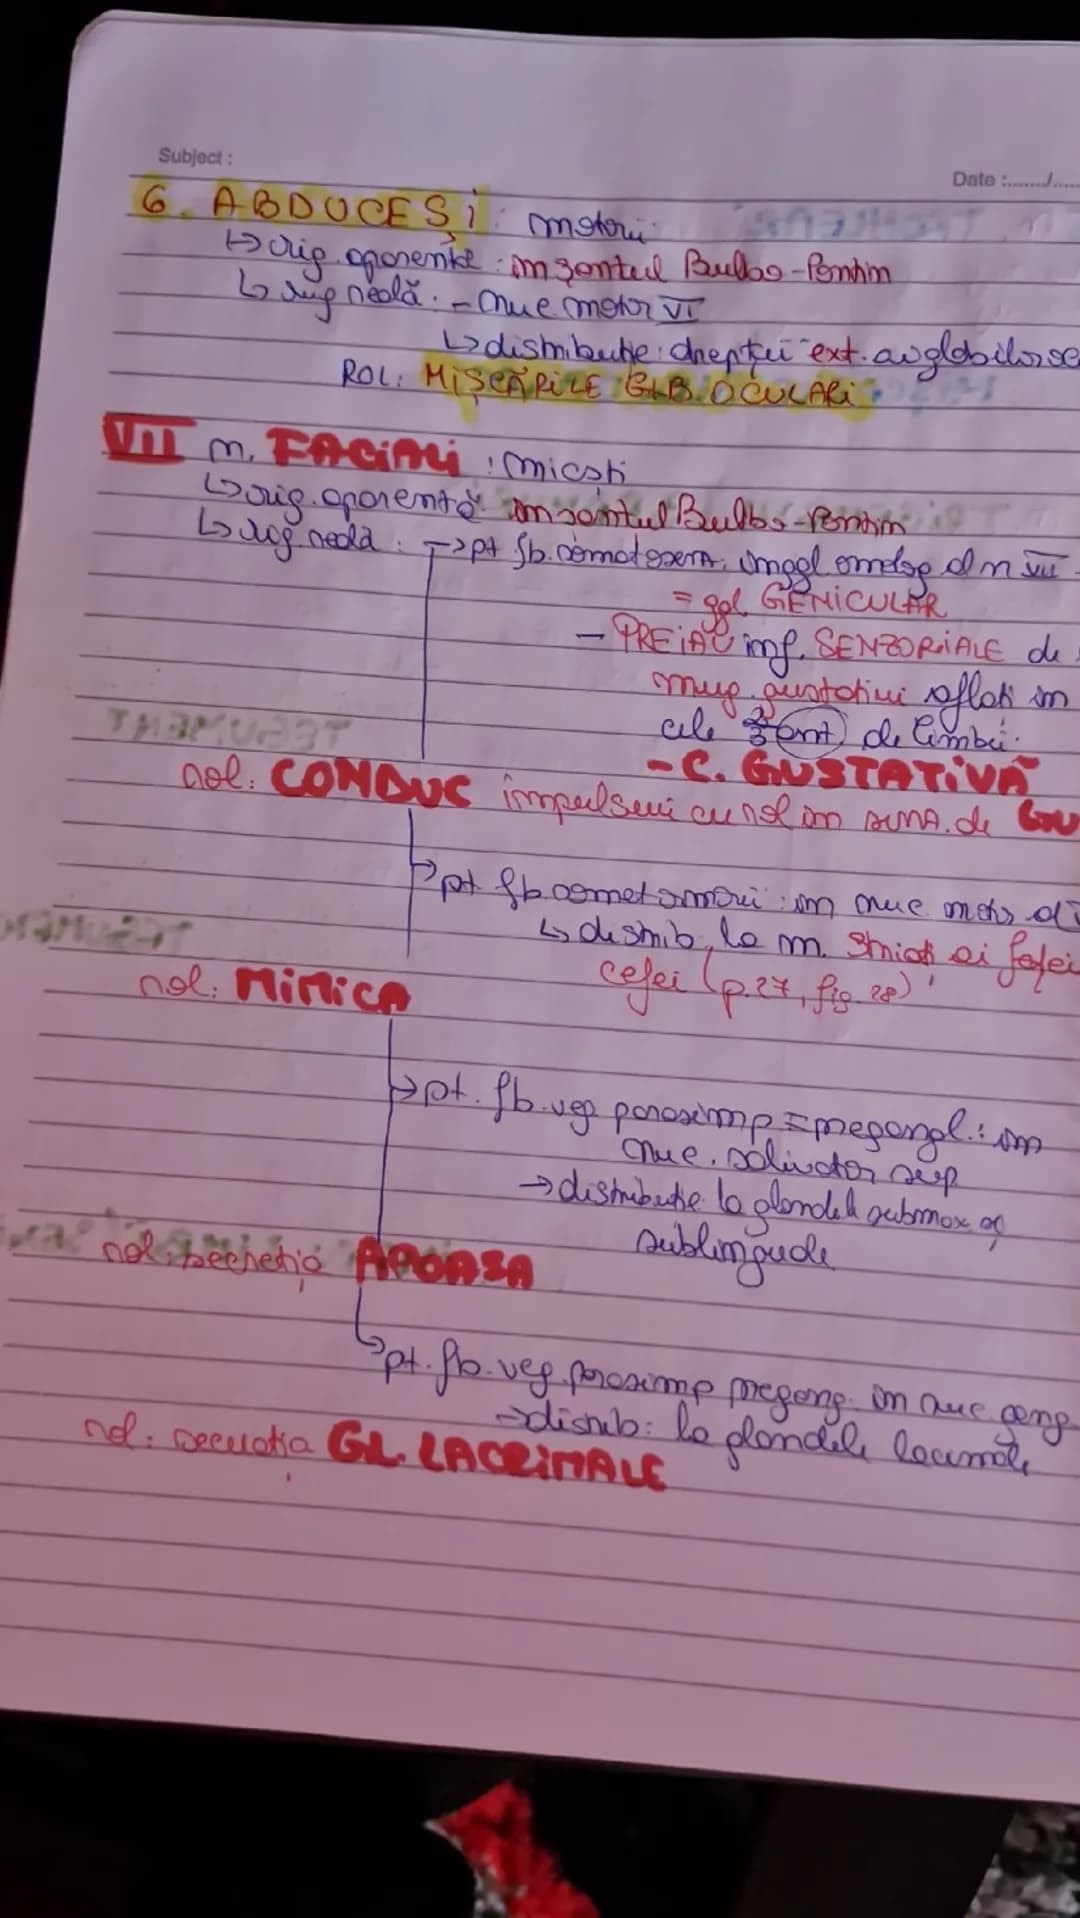 Subject :
Date :......./.....
6. ABDUCEȘI : motori
↳ orig. aparentă : în șanțul Bulbo-Pontin
↳ orig reală : - nuc motor VI
↳ distribuție : drepții ext. ai globilor
ROL: MIȘCĂRILE GLB. OCULARI
VII n. FACIALI : micști
↳ orig. aparentă în șanțul Bulbo-Pontin
↳ orig reală : → pt fb. în ggl. n VII
= ggl GENICULAR
- PREIAU inf. SENZORIALE de
mug. gustativi aflați în
cele 2/3 ant de limbii
- C. GUSTATIVĂ
rol: CONDUC impulsuri cu rol în de
→ pt fb. : în nuc moto al
↳ distrib. la m. striați ai feței
cefei (p.27, fig. 28)
rol: MIMICA
→ pt. fb. veg parasimp = pregangl. : în
nuc. salivator sup
→ distribuție la glandele submax și
sublinguale
rol: secreția APOASA
↳ pt. fb. veg. parasimp pregang. în nuc
→ distrib: la glandele lacrimale
rol: secreția GL. LACRIMALE